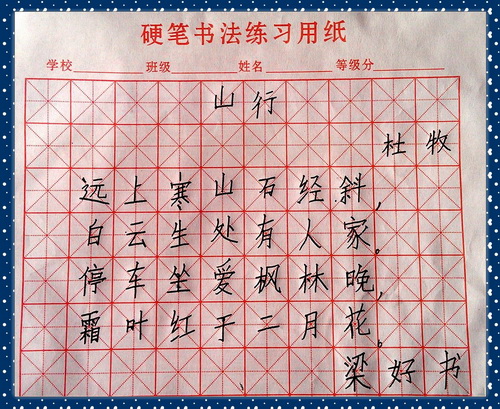 硬笔书法练习用纸
学校 班级 姓名 等级分
山行
杜牧
远上寒山石经斜，
白云生处有人家。
停车坐爱枫林晚，
霜叶红于二月花。
梁好书